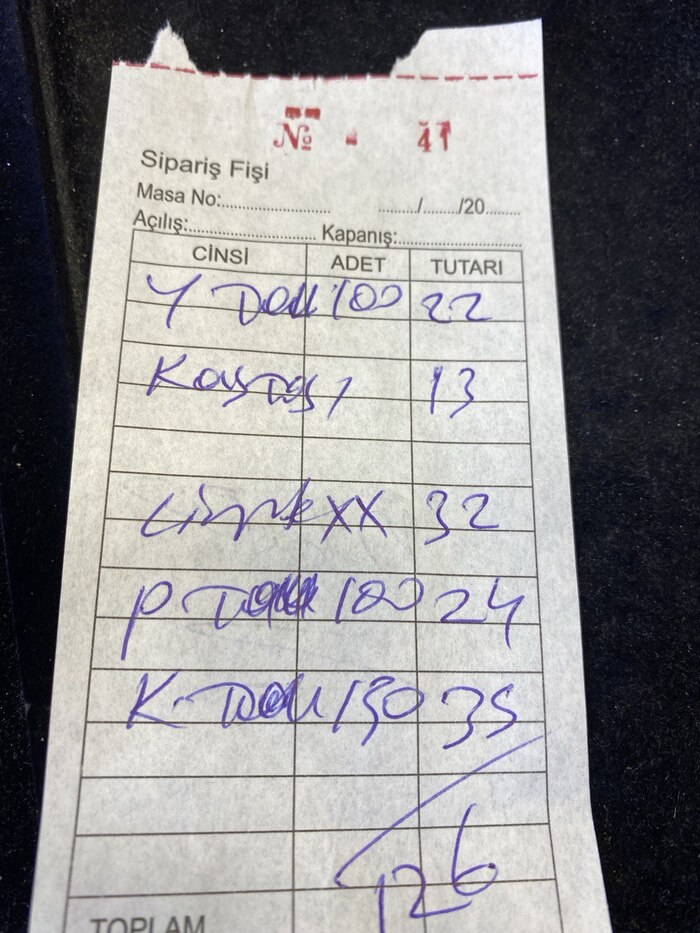 № 41
Sipariş Fişi
Masa No:.............................. ........./......../20........
Açılış:.............................. Kapanış:..............................
CİNSİ ADET TUTARI
Y 100 22
13
XX 32
P 100 24
K 150 35
126
TOPLAM